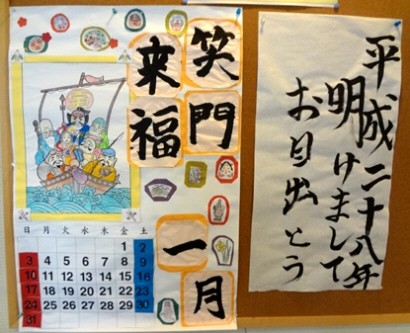 笑門
来福
一月
日 月 火 水 木 金 土
1 2
3 4 5 6 7 8 9
10 11 12 13 14 15 16
17 18 19 20 21 22 23
24 25 26 27 28 29 30
31
平成二十八年
明けまして
お目出とう